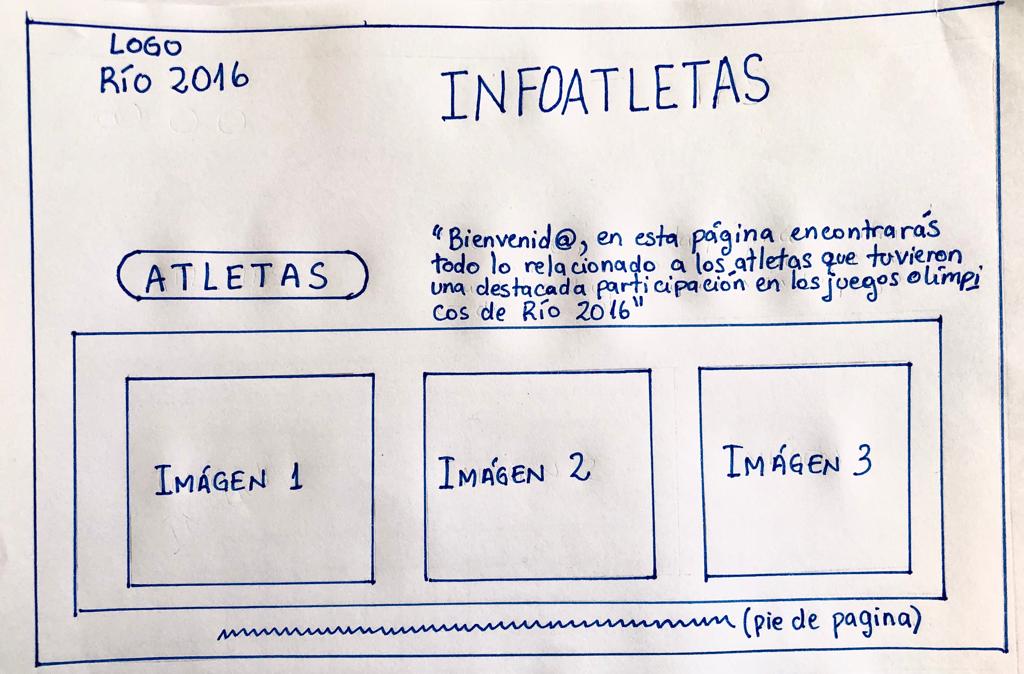 LOGO
RÍO 2016
INFOATLETAS
ATLETAS
"Bienvenid@, en esta página encontrarás
todo lo relacionado a los atletas que tuvieron
una destacada participación en los juegos olímpi
cos de Río 2016"
IMÁGEN 1
IMÁGEN 2
IMÁGEN 3
(pie de pagina)